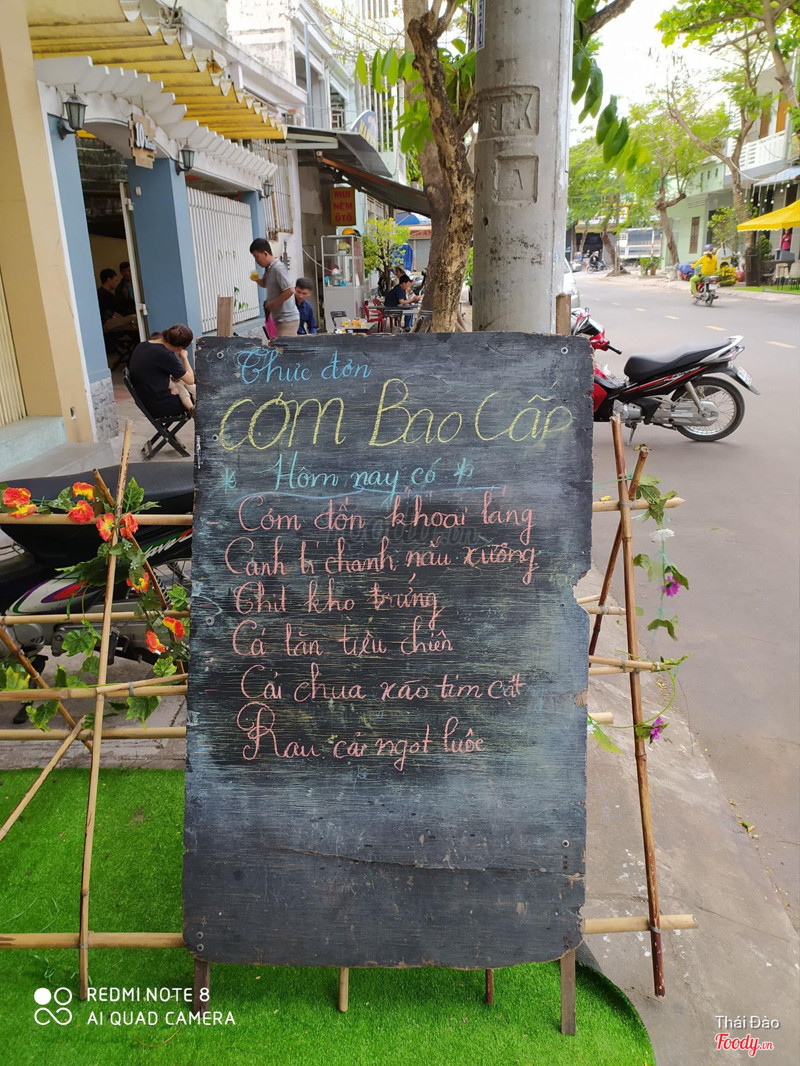 MUI
NỆM
ÔTÔ
TK
A
Thực đơn
CƠM Bao Cấp
* Hôm nay có *
Cơm độn khoai lang
Canh bí chanh nấu xương
Thịt kho trứng
Cá lăn tiêu chiên
Cải chua xào tim cật
Rau cải ngọt luộc
REDMI NOTE 8
AI QUAD CAMERA
Thái Đào
Foody.vn